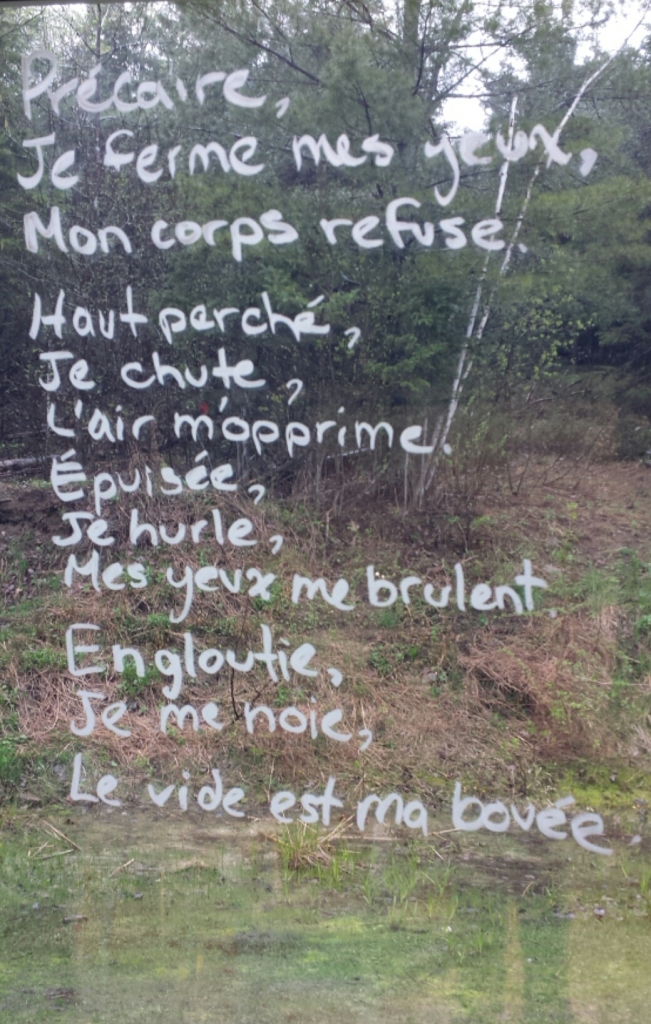 Précaire,
Je ferme mes yeux,
Mon corps refuse.
Haut perché,
Je chute,
L'air m'opprime.
Épuisée,
Je hurle,
Mes yeux me brulent.
Engloutie,
Je me noie,
Le vide est ma bouée.